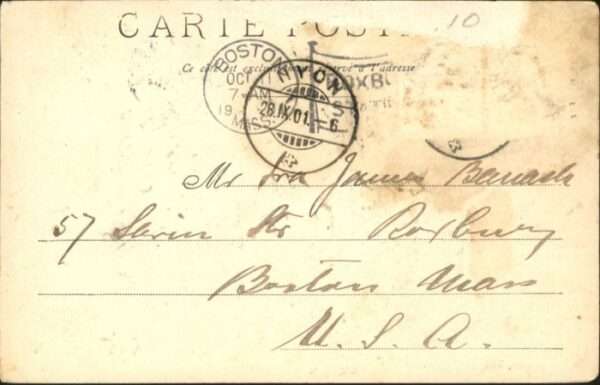 CARTE POST
10
Ce côté est exclusivement réservé à l'adresse
BOSTON
OCT
7-AM
19
MASS.
NYON
28.IX.01.-6
OXB
Mr Ira James
57 Savin Str Roxbury
Boston Mass
U. S. A.